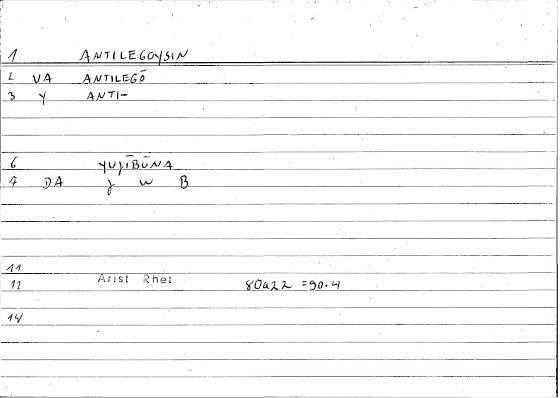 1 ANTILEGOYSIN
2 VA ANTILEGŌ
3 Y ANTI-
6 YUJĪBŪNA
7 DA j w B
11
12 Arist Rhet 80a22 =90.4
14